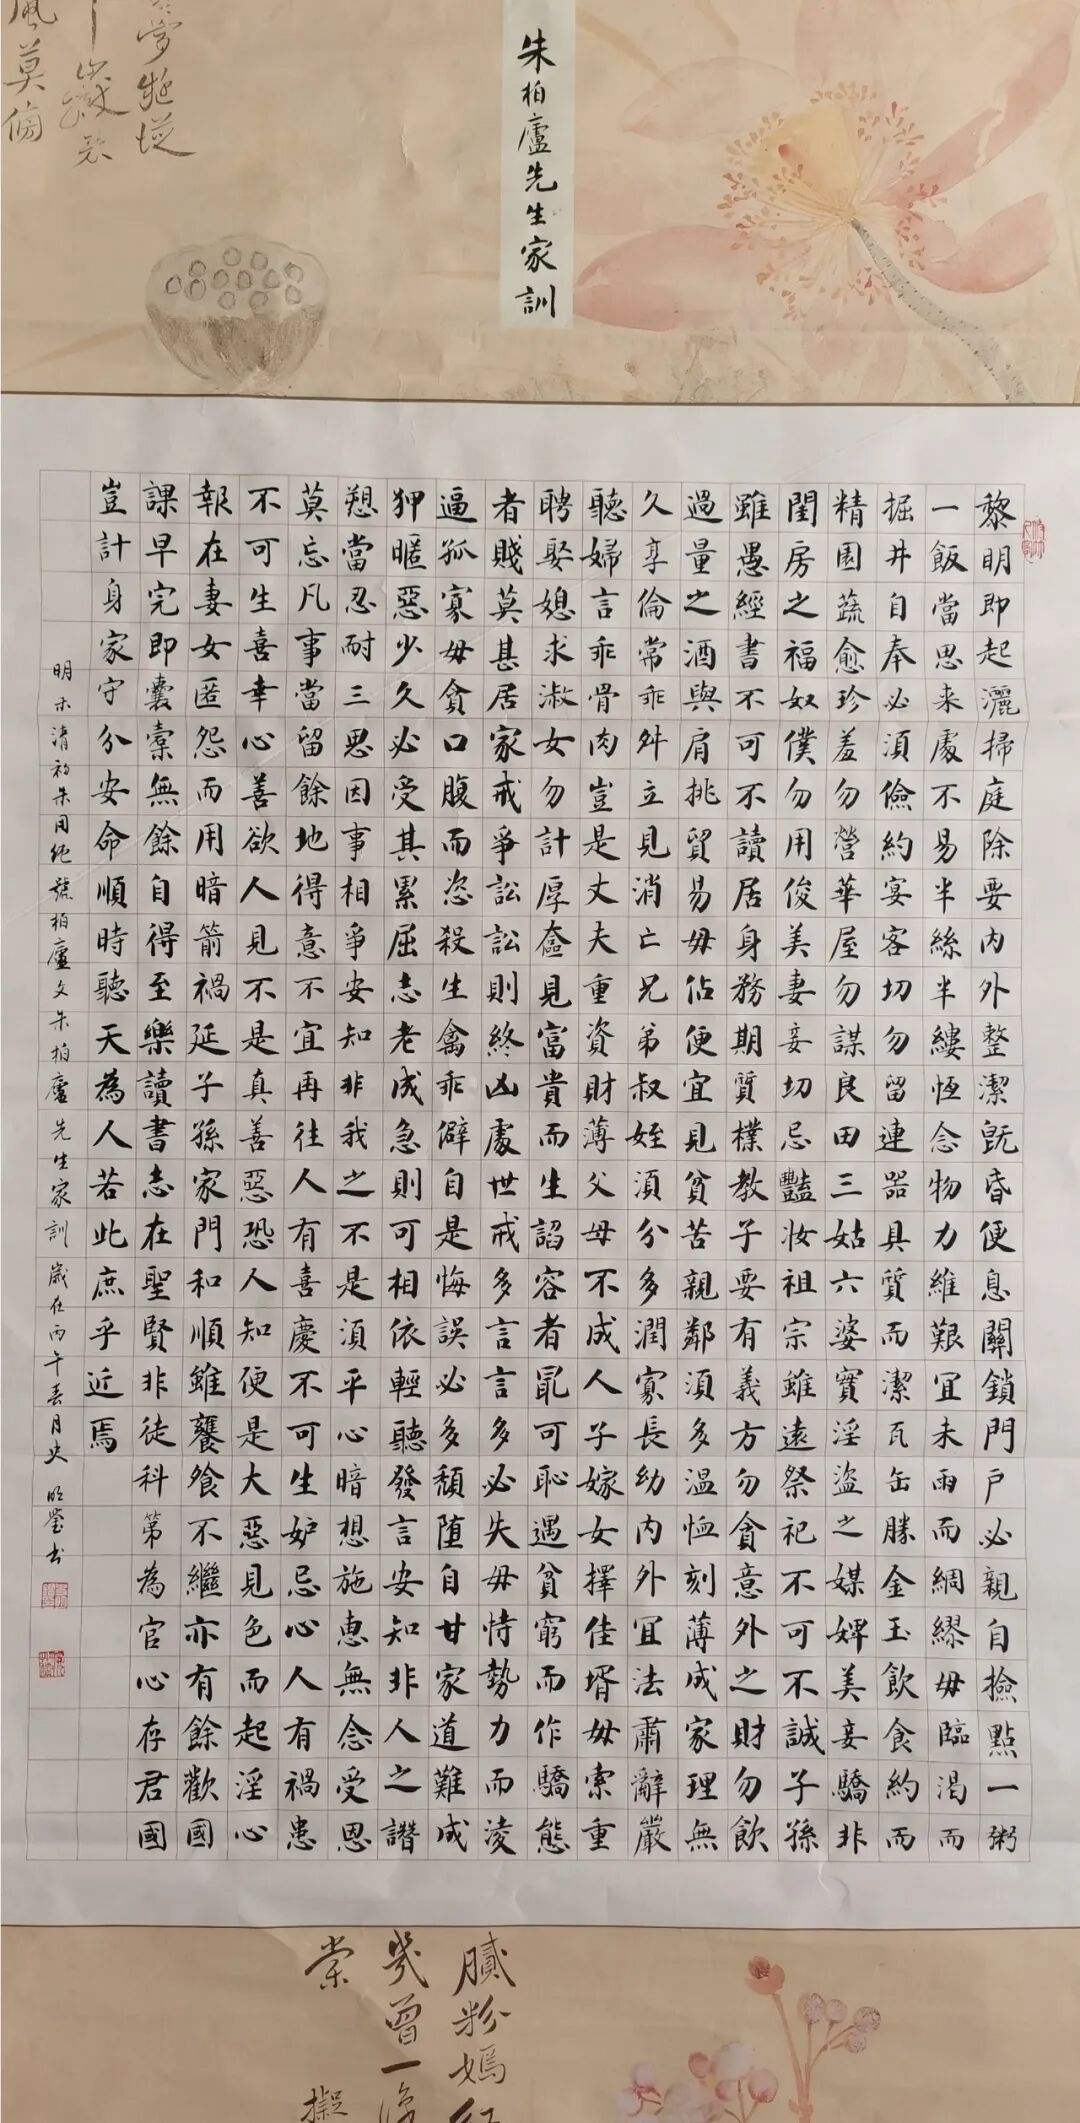 朱柏廬先生家訓
黎明即起灑掃庭除要内外整潔既昏便息關鎖門戶必親自撿點一粥
一飯當思来處不易半絲半縷恆念物力維艱宜未雨而綢繆毋臨渴而
掘井自奉必須儉約宴客切勿留連器具質而潔瓦缶勝金玉飲食約而
精園蔬愈珍羞勿營華屋勿謀良田三姑六婆實淫盜之媒婢美妾驕非
閨房之福奴僕勿用俊美妻妾切忌豔妝祖宗雖遠祭祀不可不誠子孫
雖愚經書不可不讀居身務期質樸教子要有義方勿貪意外之財勿飲
過量之酒與肩挑貿易毋佔便宜見貧苦親鄰須多温恤刻薄成家理無
久享倫常乖舛立見消亡兄弟叔姪須分多潤寡長幼内外宜法肅辭嚴
聽婦言乖骨肉豈是丈夫重資財薄父母不成人子嫁女擇佳壻毋索重
聘娶媳求淑女勿計厚奩見富貴而生諂容者最可恥遇貧窮而作驕態
者賤莫甚居家戒爭訟訟則終凶處世戒多言言多必失毋恃勢力而凌
逼孤寡毋貪口腹而恣殺生禽乖僻自是悔誤必多頹堕自甘家道難成
狎暱惡少久必受其累屈志老成急則可相依輕聽發言安知非人之譖
愬當忍耐三思因事相爭安知非我之不是須平心暗想施惠無念受恩
莫忘凡事當留餘地得意不宜再往人有喜慶不可生妒忌心人有禍患
不可生喜幸心善欲人見不是真善惡恐人知便是大惡見色而起淫心
報在妻女匿怨而用暗箭禍延子孫家門和順雖饔飧不繼亦有餘歡國
課早完即囊橐無餘自得至樂讀書志在聖賢非徒科第為官心存君國
豈計身家守分安命順時聽天為人若此庶乎近焉
明末清初朱用純號柏廬文朱柏廬先生家訓歲在丙午春月史明瑩书
膩粉嫣紅
幾曾一
棠 擬